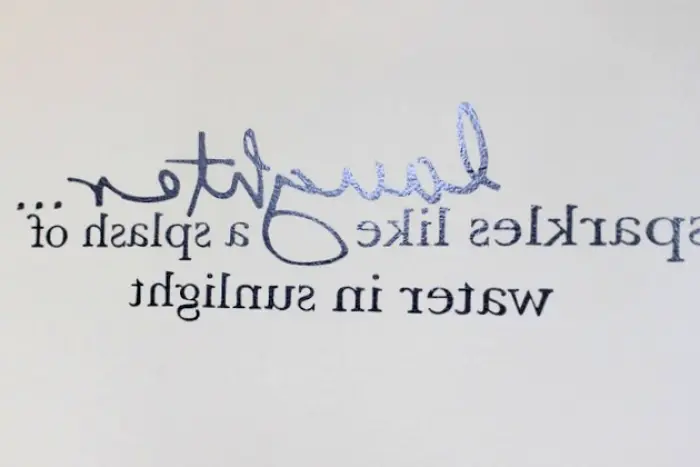 laughter...
sparkles like a splash of
water in sunlight